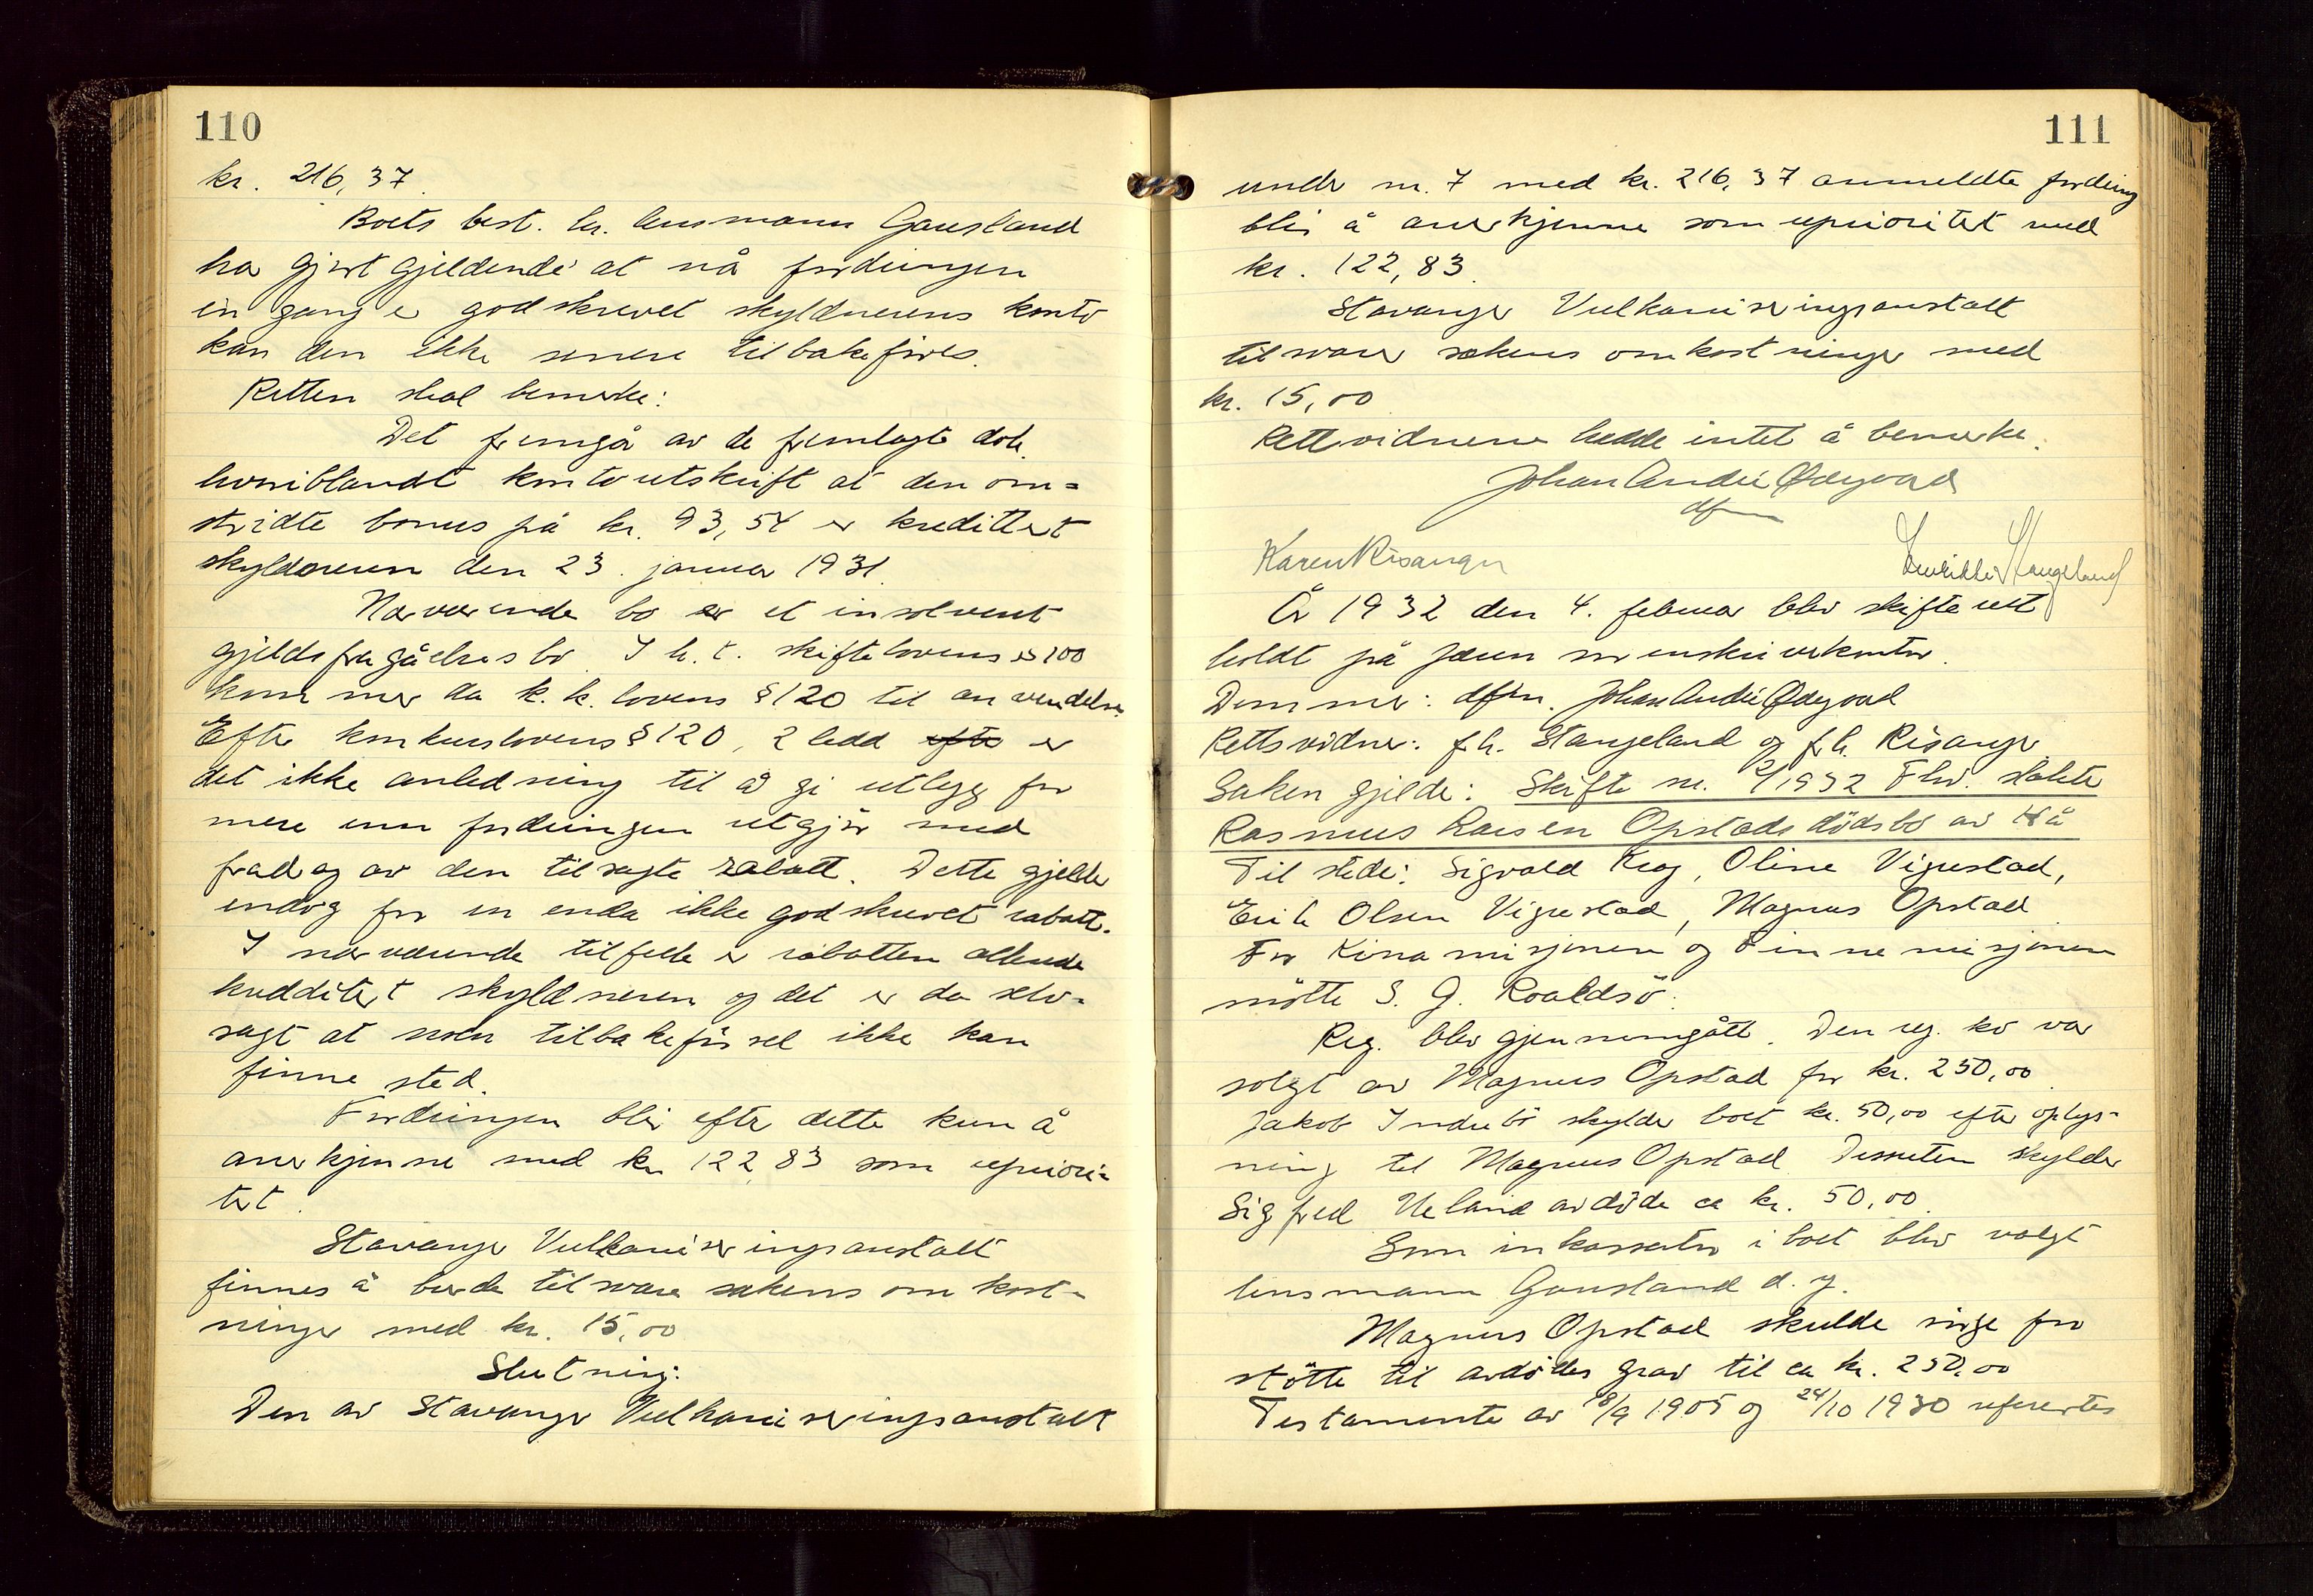 110
kr. 216,37.
Boets best. hr. lensmann Gausland
har gjort gjeldende at nå fordringen
en gang er godskrevet skyldnerens konto
kan den ikke senere tilbakeføres.
Retten skal bemerke:
Det fremgår av de fremlagte dok.
hvoriblandt kontoutskrift at den om-
stridte bonus på kr. 93,54 er kredittert
skyldneren den 23. januar 1931.
Nærværende bo er et insolvent
gjeldsfragåelsesbo. I h. t. skiftelovens § 100
kommer da k.k. lovens § 120 til anvendelse.
Efter konkurslovens § 120, 2 ledd efter er
det ikke anledning til å gi utlegg for
mere enn fordringen utgjør med
fradrag av den tilsagte rabatt. Dette gjelder
endog for en enda ikke godskrevet rabatt.
I nærværende tilfelle er rabatten allerede
kredditert skyldneren og det er da selv-
sagt at noen tilbakeførsel ikke kan
finne sted.
Fordringen blir efter dette kun å
anerkjenne med kr. 122,83 som upriori-
tert.
Stavanger Vulkaniseringsanstalt
finnes å burde tilsvare sakens omkost-
ninger med kr. 15,00
Slutning:
Den av Stavanger Vulkaniseringsanstalt
111
under nr. 7 med kr. 216,37 anmeldte fordring
blir å anerkjenne som uprioritet med
kr. 122,83.
Stavanger Vulkaniseringsanstalt
tilsvarer sakens omkostninger med
kr. 15,00
Rettsvidnene hadde intet å bemerke.
Johan André Ødegaard
dfm
Karen Risanger
Stangeland
År 1932 den 4. februar blev skifterett
holdt på Jæren sorenskriverkontor.
Dommer: dfm. Johan André Ødegaard
Rettsvidner: frk. Stangeland og frk. Risanger
Saken gjelder: Skifte nr. 2/1932 Fhv. slakter
Rasmus Larsen Opstads dødsbo av Hå
Til stede: Sigvald Krag, Oline Vigrestad,
Erik Olsen Vigrestad, Magnus Opstad.
For Kinamisjonen og Finnemisjonen
møtte S. G. Roaldsø.
Reg. blev gjennemgått. Den reg. ko var
solgt av Magnus Opstad for kr. 250,00.
Jakob Indrebø skylder boet kr. 50,00 efter oplys-
ning til Magnus Opstad. Dessuten skylder
Sigfred Ueland avdøde ca kr. 50,00.
Som inkassator i boet blev valgt
lensmann Gausland d. y.
Magnus Opstad skulde sørge for
støtte til avdødes grav til ca kr. 250,00
Testamente av 18/9 1905 og 24/10 1930 refereres